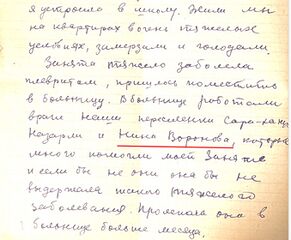 я устроила в школу. Жили мы
на квартирах в очень тяжелых
условиях, замерзали и голодали.
Занята тяжело заболела
плевритом, пришлось поместить
в больницу. В больнице работали
врачи наши переселенки Сара-ханы
Казарли и Нина Воронова, которые
много помогли моей Заняте
и если бы не они она бы не
выдержала такого тяжелого
заболевания. Пролежала она в
больнице больше месяца.